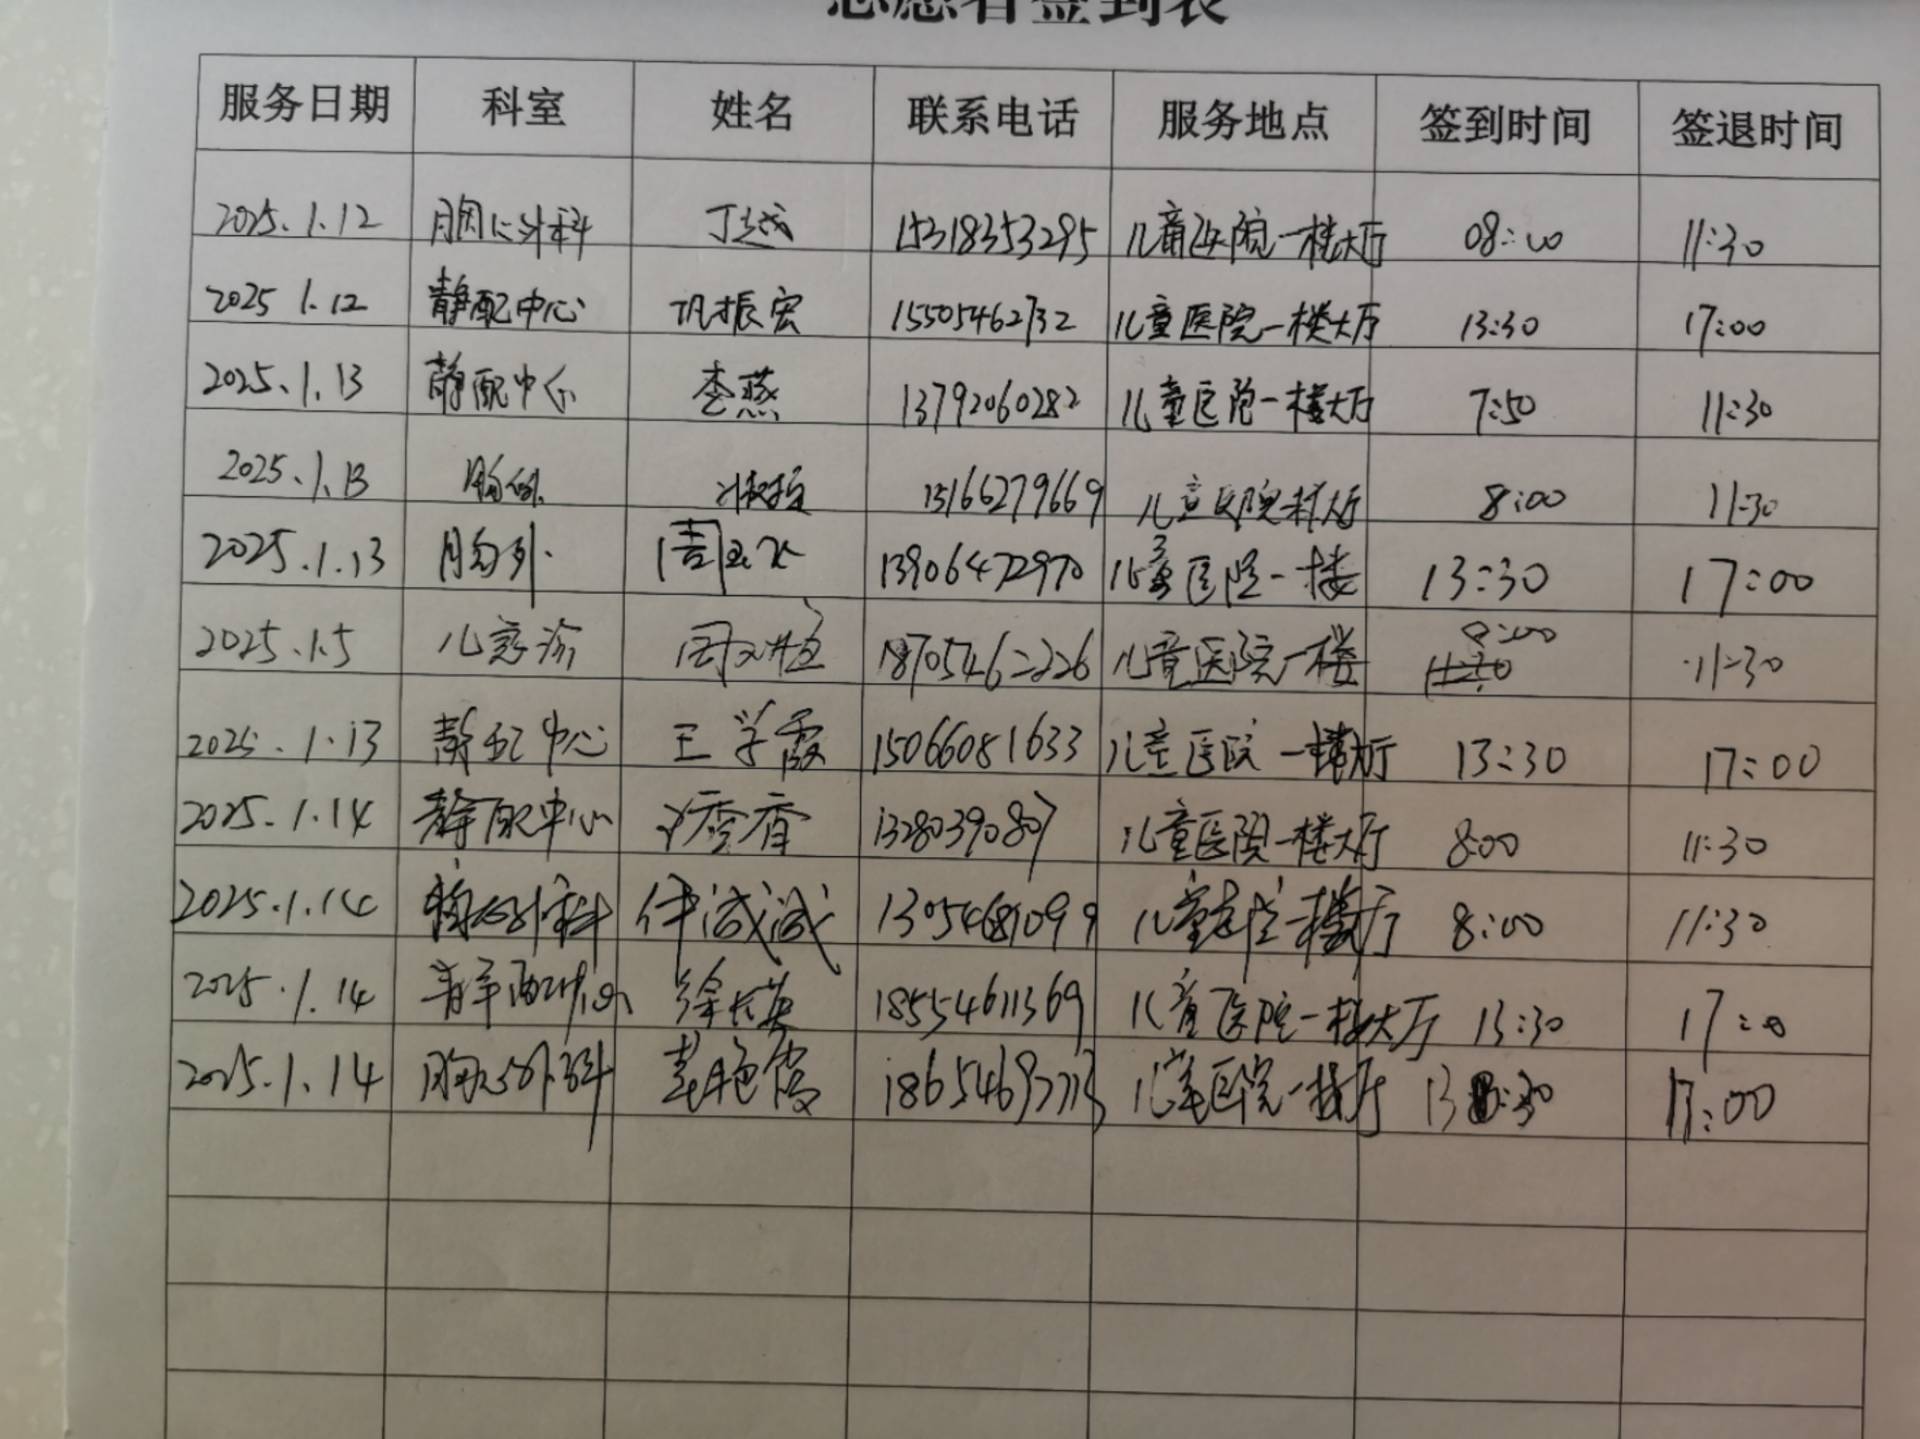 志愿者签到表
服务日期 科室 姓名 联系电话 服务地点 签到时间 签退时间
2025.1.12 胸心外科 丁越 15318353295 儿童医院一楼大厅 08:00 11:30
2025 1.12 静配中心 巩振宏 15505462732 儿童医院一楼大厅 13:30 17:00
2025.1.13 静配中心 李燕 13792060282 儿童医院一楼大厅 7:50 11:30
2025.1.13 胸外 15166279669 儿童医院一楼大厅 8:00 11:30
2025.1.13 胸外. 13906472970 儿童医院一楼 13:30 17:00
2025.1.5 儿急诊 18705462226 儿童医院一楼 8:00 11:30
2025.1.13 静配中心 王学霞 15066081633 儿童医院一楼大厅 13:30 17:00
2025.1.14 静配中心 13280390807 儿童医院一楼大厅 8:00 11:30
2025.1.14 胸心外科 13054681099 儿童医院一楼大厅 8:00 11:30
2025.1.14 静配中心 徐长英 18554611369 儿童医院一楼大厅 13:30 17:00
2025.1.14 胸心外科 儿童医院一楼大厅 13:30 17:00